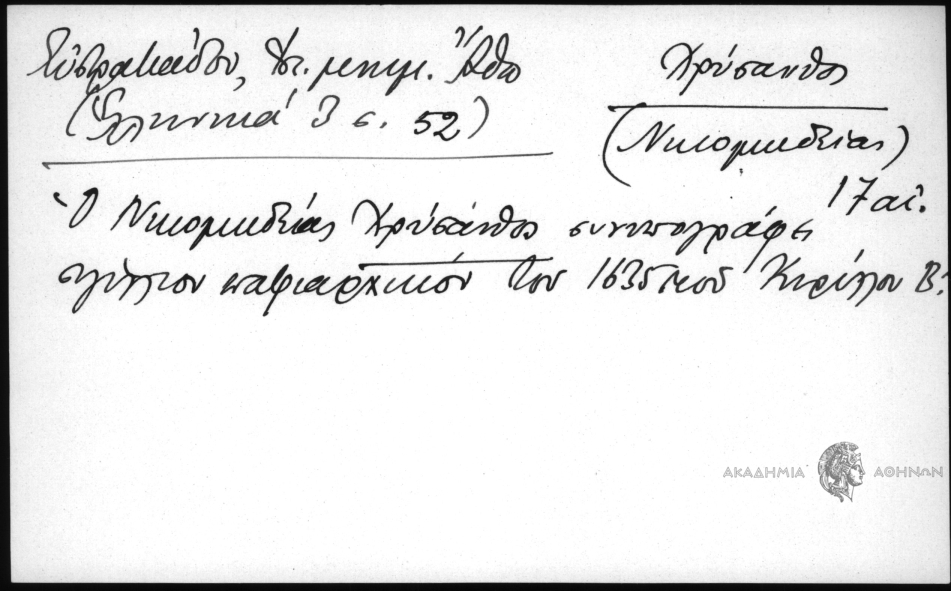 Εὐστρατιάδου, Ἱστ. μνημ. Ἄθω
(Ἑλληνικά 3 σ. 52)
Χρύσανθος
(Νικομηδείας)
17 αἰ.
Ὁ Νικομηδείας Χρύσανθος συνυπογράφει
σιγίλλιον πατριαρχικόν τοῦ 1635 τοῦ Κυρίλλου Β΄.
ΑΚΑΔΗΜΙΑ ΑΘΗΝΩΝ